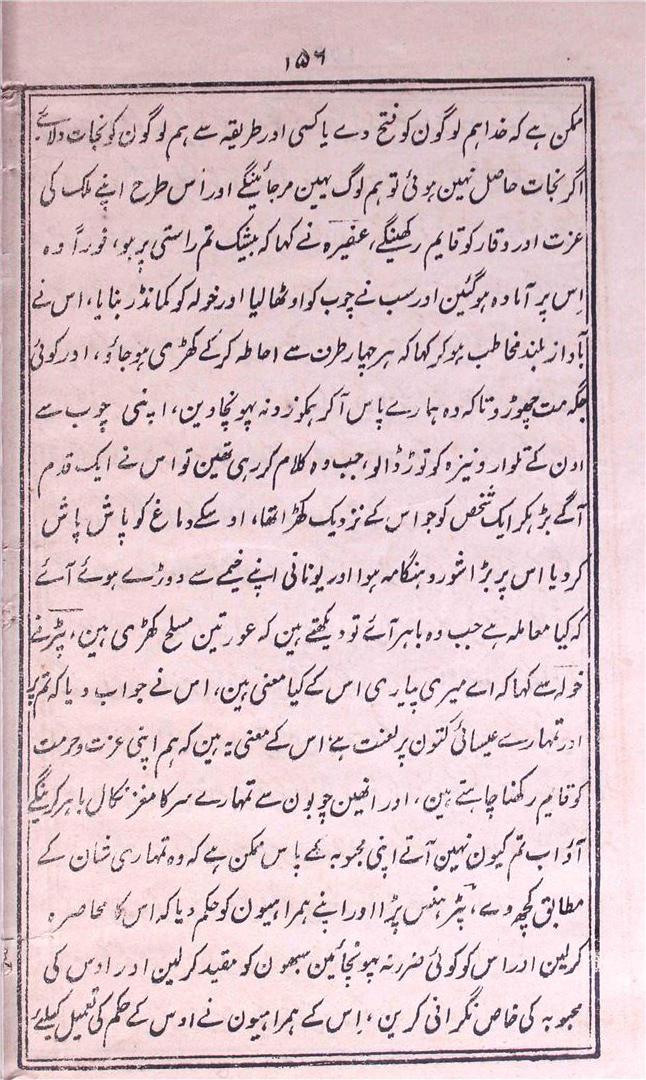 ۱۵۶
ممکن ہے کہ خدا ہم لوگون کو فتح دے یا کسی اور طریقہ سے ہم لوگون کو نجات دلائے
اگر نجات حاصل نہین ہوئی تو ہم لوگ یہین مرجائینگے اور اس طرح اپنے ملک کی
عزت اور وقار کو قایم رکھینگے، عفیرہ نے کہا کہ بیشک تم راستی پر ہو، فوراً وہ
اِس پر آمادہ ہوگئین اور سب نے چوب کو اوٹھا لیا اور خولہ کو کمانڈر بنایا، اس نے
بآواز بلند مخاطب ہوکر کہا کہ ہر چہار طرف سے احاطہ کرکے کھڑی ہو جاؤ، اور کوئی
جگہ مت چھوڑو تاکہ وہ ہمارے پاس آکر ہمکو زونہ پہونچادین، اپنی چوب سے
اون کے تلوار و نیزہ کو توڑ ڈالو، جب وہ کلام کر رہی تھین تو اس نے ایک قدم
آگے بڑہکر ایک شخص کو جو اس کے نزدیک کھڑا تھا، اوسکے دماغ کو پاش پاش
کردیا اس پر بڑا شور و ہنگامہ ہوا اور یونانی اپنے خیمے سے دوڑے ہوئے آئے
کہ کیا معاملہ ہے جب وہ باہر آئے تو دیکھتے ہین کہ عورتین مسلح کھڑی ہین، پٹر نے
خولہ سے کہا کہ اے میری پیاری اس کے کیا معنی ہین، اس نے جواب دیا کہ تم پر
اور تمہارے عیسائی کتون پر لعنت ہے، اس کے معنی یہ ہین کہ ہم اپنی عزت و حرمت
کو قایم رکھنا چاہتے ہین، اور انھین چوبون سے تمہارے سر کا مغز نکال باہر کرینگے
آؤ اب تم کیون نہین آتے اپنی محبوبہ کے پاس ممکن ہے کہ وہ تمہاری شان کے
مطابق کچھ دے، پٹر ہنس پڑا اور اپنے ہمراہیون کو حکم دیا کہ اس کا محاصرہ
کرلین اور اس کو کوئی ضرر نہ پہونچائین سبھون کو مقید کرلین اور اوس کی
محبوبہ کی خاص نگرانی کرین، اِس کے ہمراہیون نے اوس کے حکم کی تعمیل کیلئے